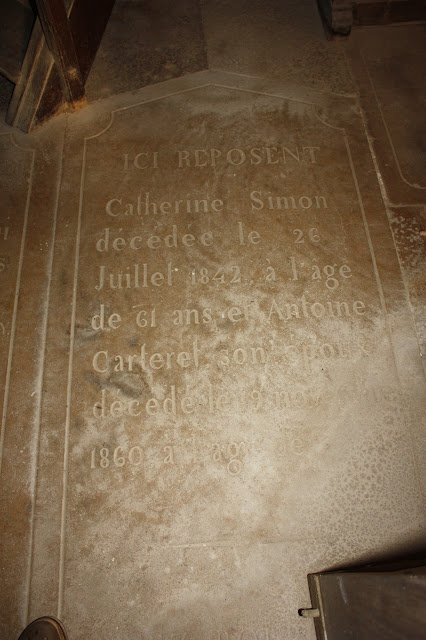 ICI REPOSENT
Catherine Simon
décédée le 26
Juillet 1842, à l'âge
de 61 ans et Antoine
Carteret son époux
décédé le 19 nov
1860 à l'age de